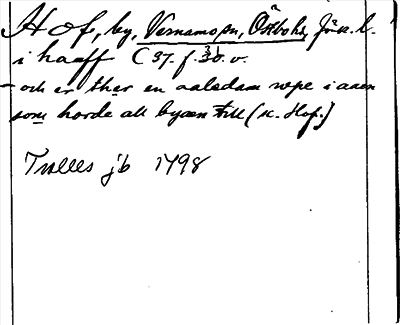 Hof, by, Värnamo sn, Östbo hd, Jön. l.
i haff C 37. f. 30. v.
– och er ther en aaledam wpe i aaen
som hørde all byæn till (n. Hof.)
Trolles jb 1498